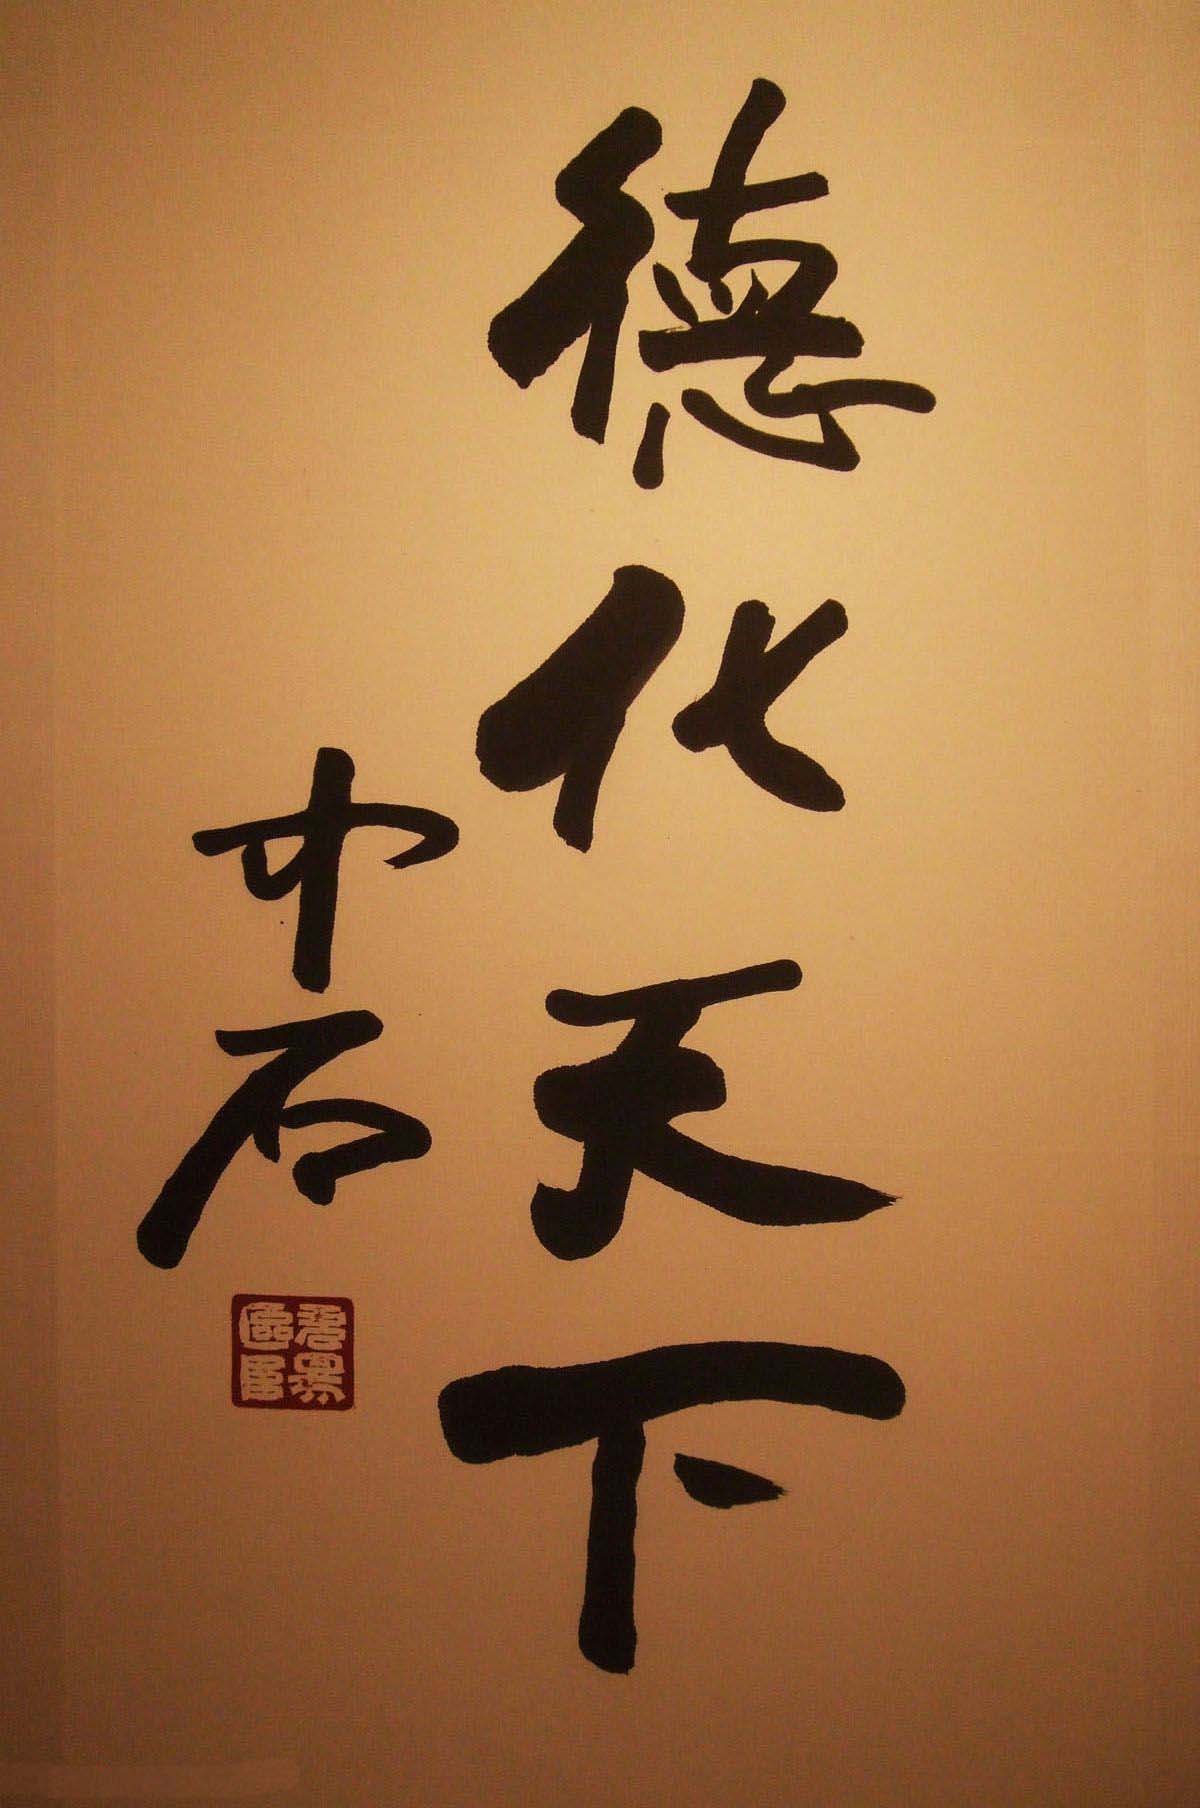 德化天下
中石